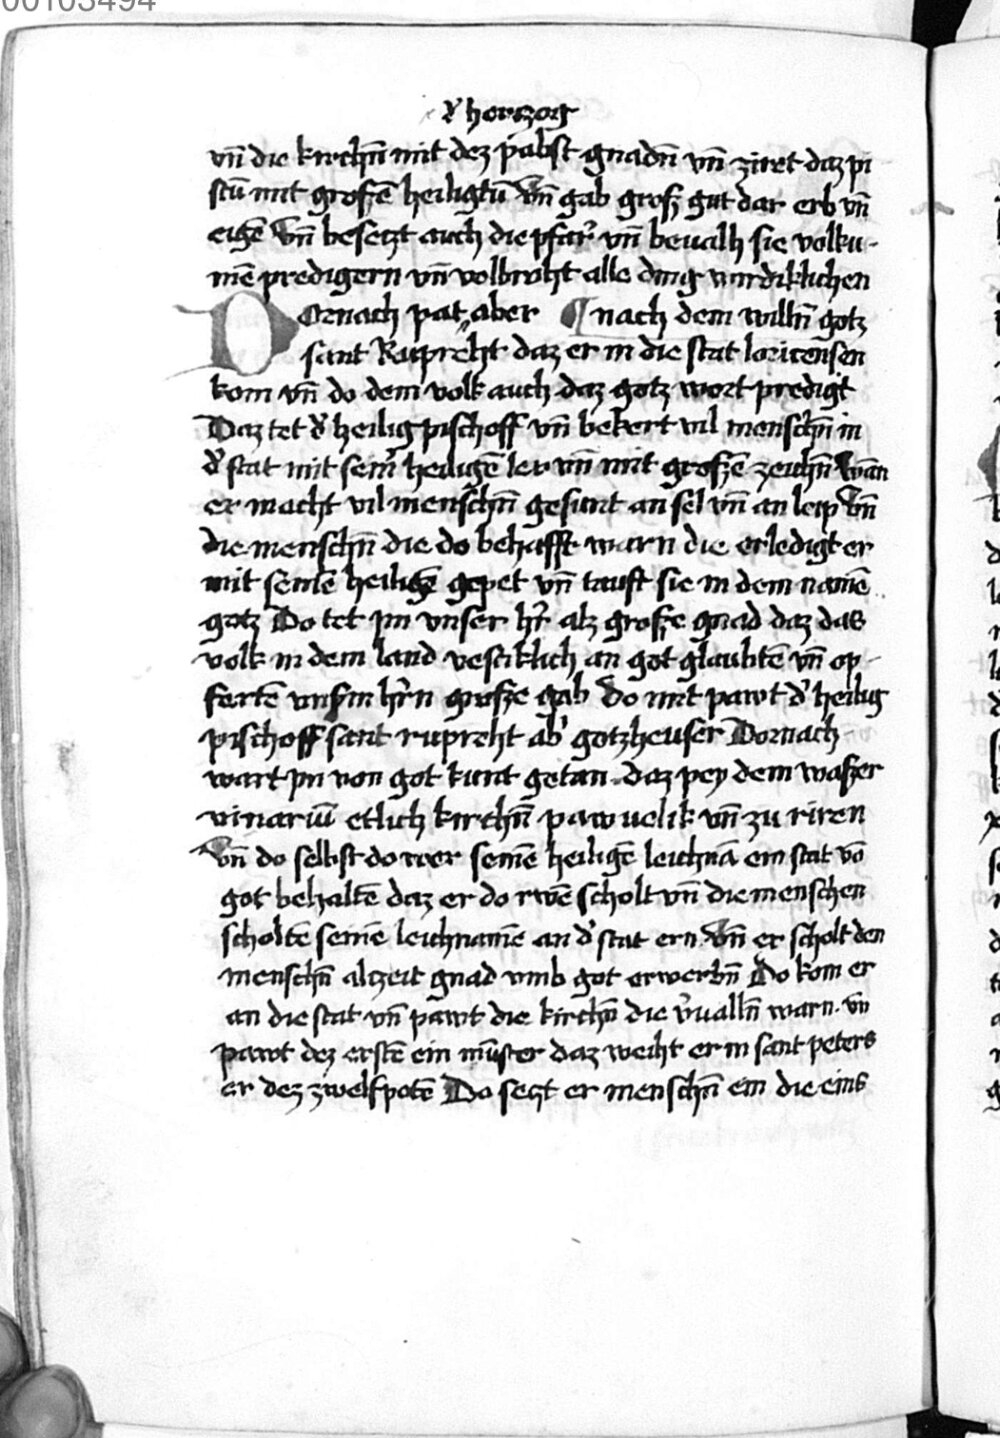 00103494
d' herzog
vn̄ die kirchn̄ mit dez pabst gnadn̄ vn̄ ziret daz pi
stū mit grofzē heiligtū Vn̄ gab grofz gut dar erb vn̄
eigē Vn̄ besetzt auch die pfar' vn̄ beualh sie volku-
mē predigern vn̄ volbroht alle ding wirdiklichen
Dornach pat aber ¶ nach dem willn̄ gotz
sant Rupreht daz er in die stat loricensen
kom vn̄ do dem volk auch daz gotz wort predigt
Daz tet d' heilig pischoff vn̄ bekert vil menschn̄ in
d' stat mit sein' heiligē ler vn̄ mit grofzē zeichn̄ Wān
er macht vil menschn̄ gesunt an sel vn̄ an leip Vn̄
die menschn̄ die do behafft warn die erledigt er
mit seinē heiligē gepet vn̄ tauft sie in dem namē
gotz Do tet ym vnser h'r alz grofze gnad daz das
volk in dem land vestiklich an got glaubtē vn̄ op-
fertē vnsm h'rn grofze gab Do mit pawt d' heilig
pischoff sant rupreht ab' gotzheuser Dornach
wart yn von got kunt getan. daz pey dem wafzer
vinariū etlich kirchn̄ paw uelik vn̄ zu riren
Vn̄ do selbst do wer seinē heiligē leichnā ein stat vō
got behaltē daz er do rwē scholt vn̄ die menschen
scholtē seinē leichnamē an d' stat ern. Vn̄ er scholt den
menschn̄ alzeit gnad vmb got erwerbn̄ Do kom er
an die stat vn̄ pawt die kirchn̄ die v'ualln̄ warn. vn̄
pawt dez erstē ein mūster daz weiht er in sant peters
er dez zwelfpotē Do setzt er menschn̄ ein die eins